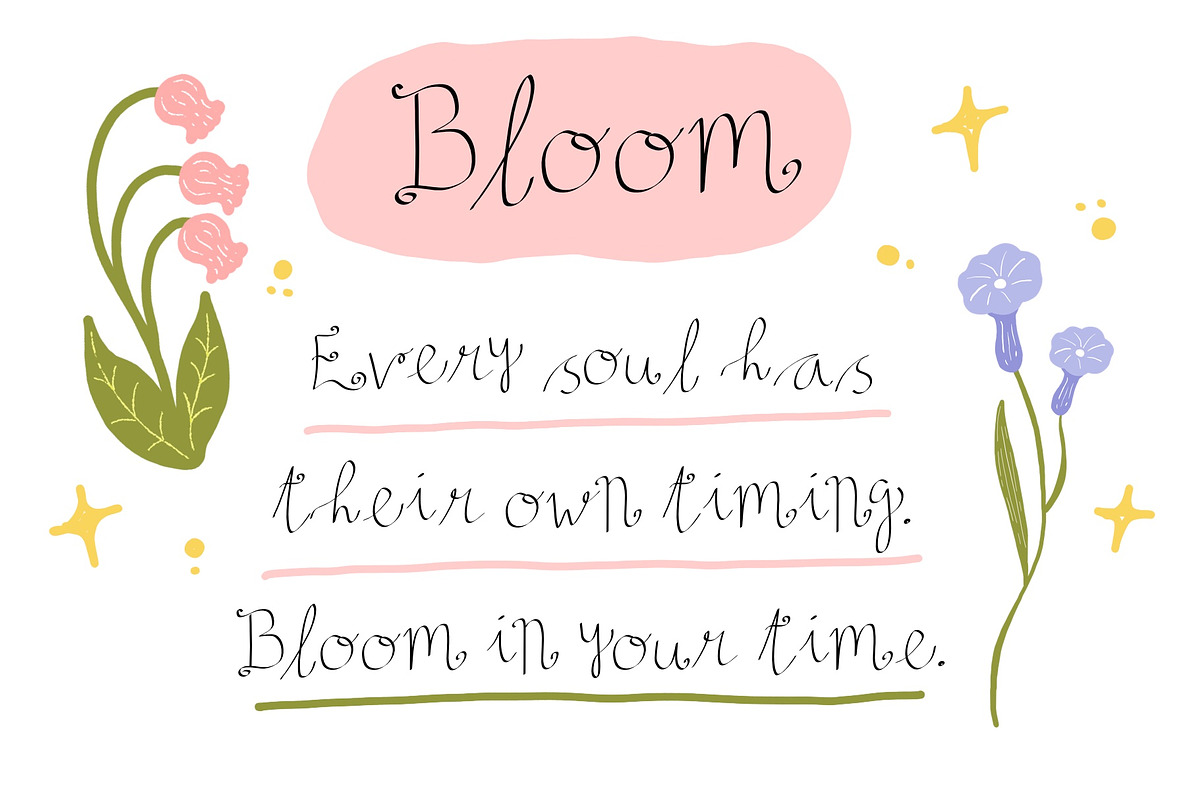 Bloom
Every soul has
their own timing.
Bloom in your time.